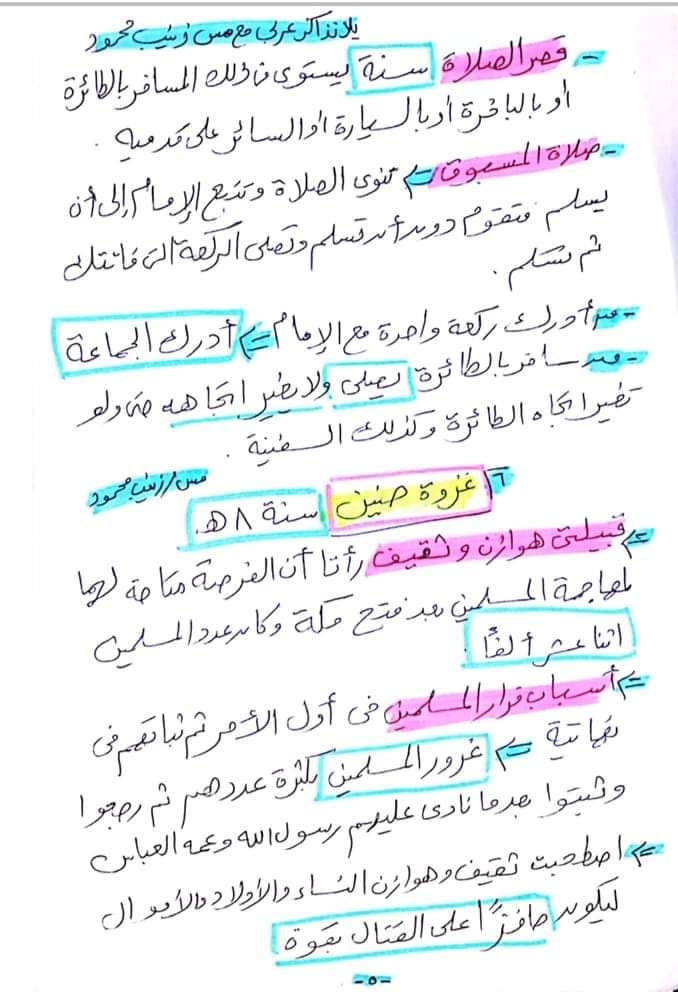 يلا نذاكر عربي مع مس زينب محمود
- قصر الصلاة سنة يستوى فى ذلك المسافر بالطائرة
أو بالباخرة أو بالسيارة أو السائر على قدميه .
- صلاة المسبوق => تنوى الصلاة وتتبع الإمام إلى أن
يسلم فتقوم دون أن تسلم وتصلى الركعة التى فاتتك
ثم تسلم .
- من أدرك ركعة واحدة مع الإمام => أدرك الجماعة
- من سافر بالطائرة يصلى ولا يغير اتجاهه حتى ولو
تغير اتجاه الطائرة وكذلك السفينة .
٦ غزوة حنين سنة ٨ هـ مس/زينب محمود
=> قبيلتى هوازن وثقيف رأتا أن الفرصة متاحة لهما
لمهاجمة المسلمين بعد فتح مكة وكان عدد المسلمين
اثنا عشر ألفًا .
=> أسباب فرار المسلمين فى أول الأمر ثم ثباتهم فى
نهايتة => غرور المسلمين بكثرة عددهم ثم رجعوا
وثبتوا بعدما نادى عليهم رسول الله وعمه العباس
=> اصطحبت ثقيف وهوازن النساء والأولاد والأموال
ليكون حافزًا على القتال بقوة
-٥-